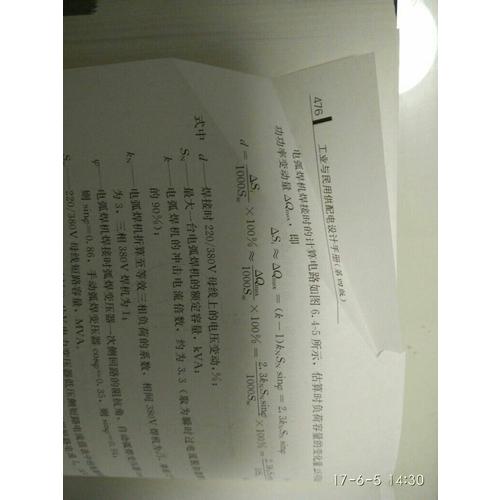 476 工业与民用供配电设计手册(第四版)
电弧焊机焊接时的计算电路如图 6.4-5 所示,估算时负荷容量的变化量
功功率变动量 ΔQmax,即
ΔSi ≈ ΔQmax = (k-1)kNSN sinφ = 2.3kNSN sinφ
d = ΔSi/1000Ssc × 100% ≈ ΔQmax/1000Ssc × 100% = 2.3kNSN sinφ/1000Ssc × 100% =
式中 d——焊接时 220/380V 母线上的电压变动,%;
SN——最大一台电弧焊机的额定容量,kVA;
k——电弧焊机的冲击电流倍数,约为 3.3(取为瞬时过电流
的 90%);
kN——电弧焊机折算至等效三相负荷的系数,相间 380V 焊机为
为 3,三相 380V 焊机为 1;
φ——电弧焊机焊接时弧焊变压器一次侧回路的阻抗角,自动弧焊变压器
则 sinφ=0.86,手动弧焊变压器 cosφ=0.35,则 sinφ=0.
220/380V 母线短路容量,MVA。
17-6-5 14:30